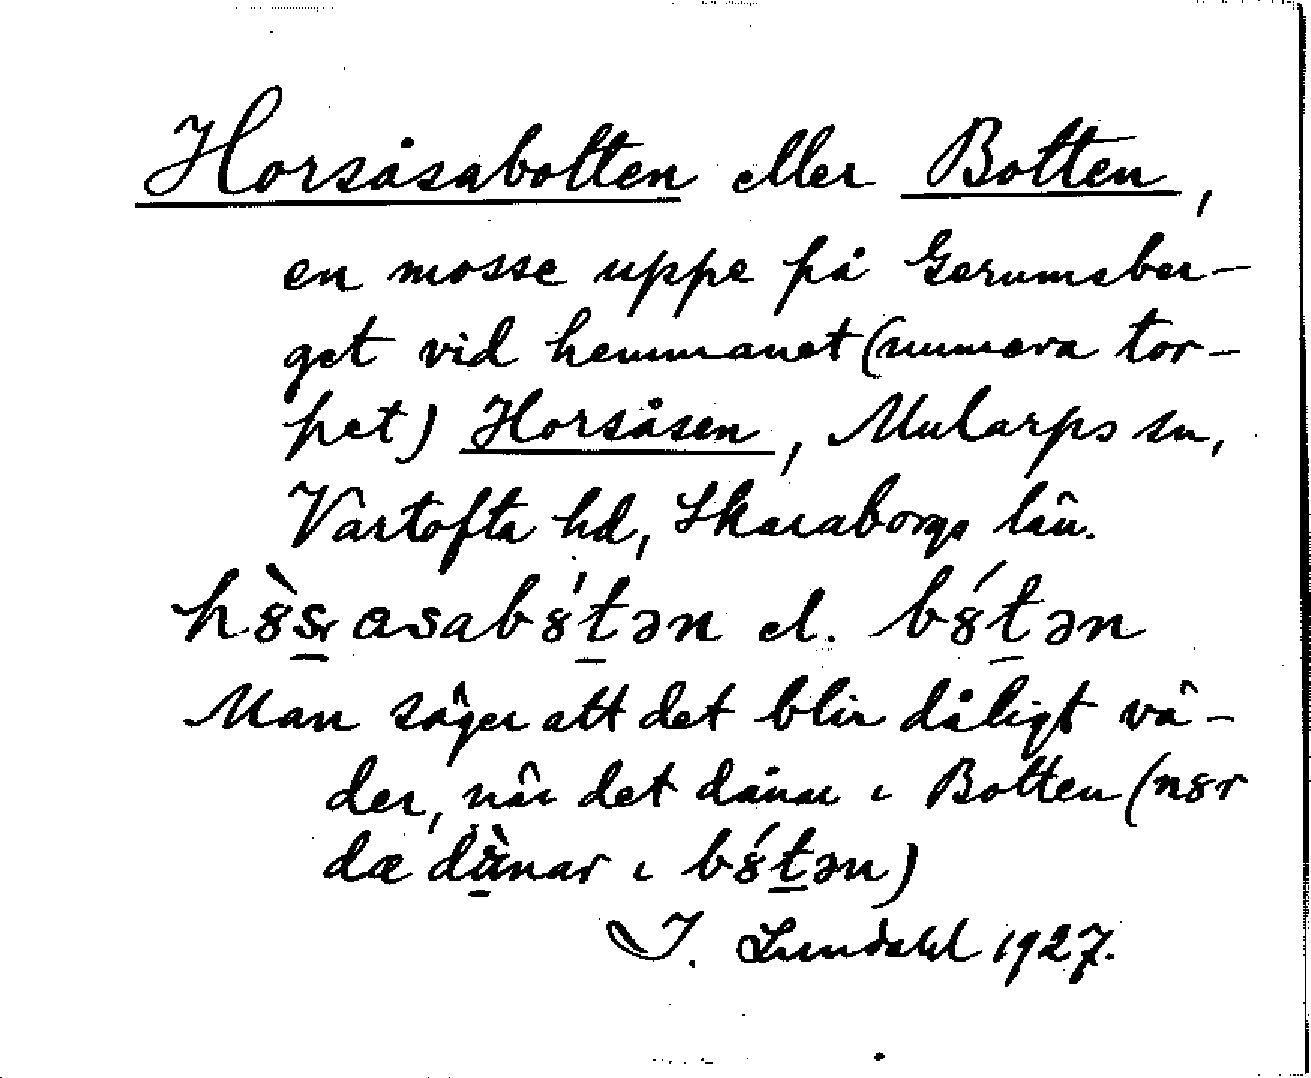 Horsåsabotten eller Botten,
en mosse uppe på Gerumsber-
get vid hemmanet (numera tor-
pet) Horsåsen, Mularps sn,
Vartofta hd, Skaraborgs län.
el.
Man säger att det blir dåligt vä-
der, när det dånar i Botten (
I. Lundahl 1927.